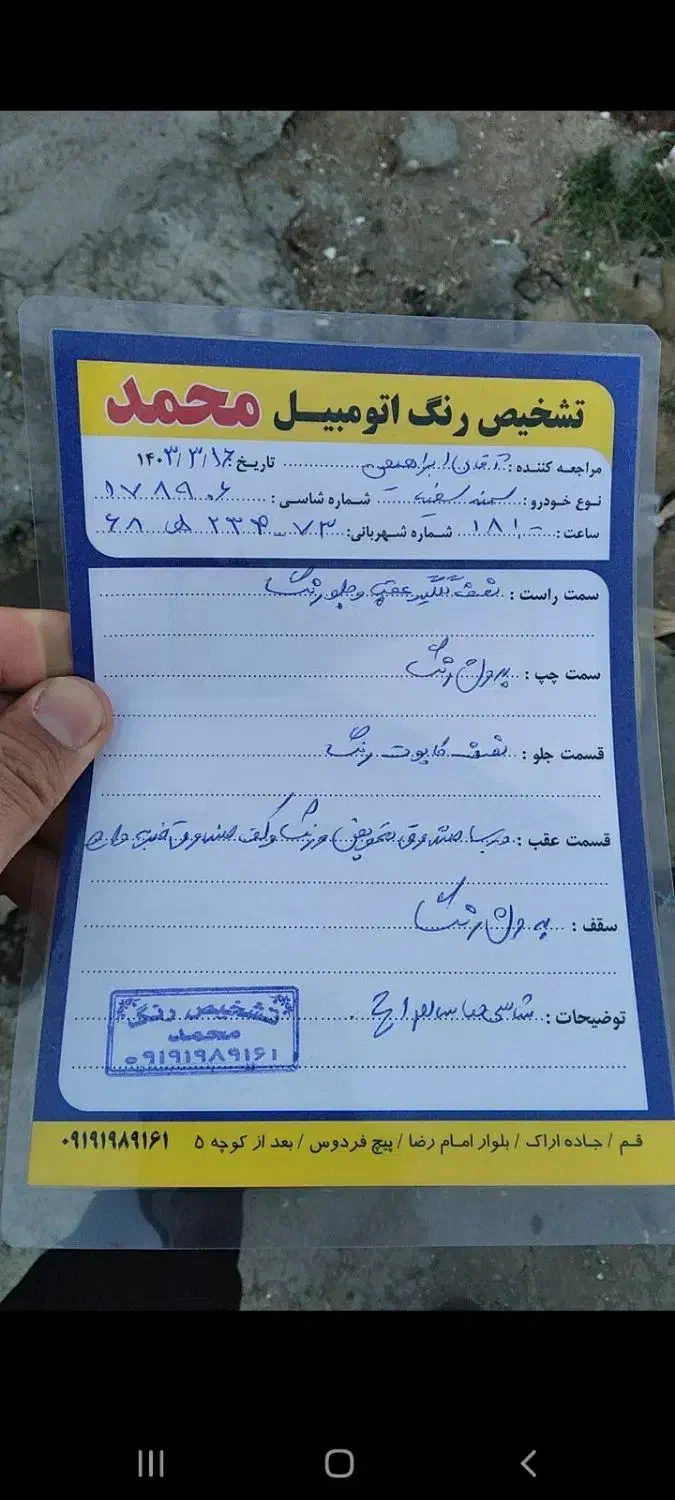 تشخیص رنگ اتومبیل محمد
مراجعه کننده : آقای ابراهیمی تاریخ ۱۴۰۳/۳/۱۶
نوع خودرو : سمند سفید شماره شاسی : ۱۷۸۹۰۶
ساعت : ۱۸۱۰ شماره شهربانی : ۷۳ ۲۳۴ ۶۸
سمت راست : نصف گلگیر عقب و جلو رنگ
سمت چپ : بدون رنگ
قسمت جلو : نصف کاپوت رنگ
قسمت عقب : درب صندوق تعویض و رنگ و کف صندوق ضربه دارد
سقف : بدون رنگ
توضیحات : شاسی ها سالم
تشخیص رنگ
محمد
۰۹۱۹۱۹۸۹۱۶۱
قم / جاده اراک / بلوار امام رضا / پیچ فردوس / بعد از کوچه ۵ ۰۹۱۹۱۹۸۹۱۶۱